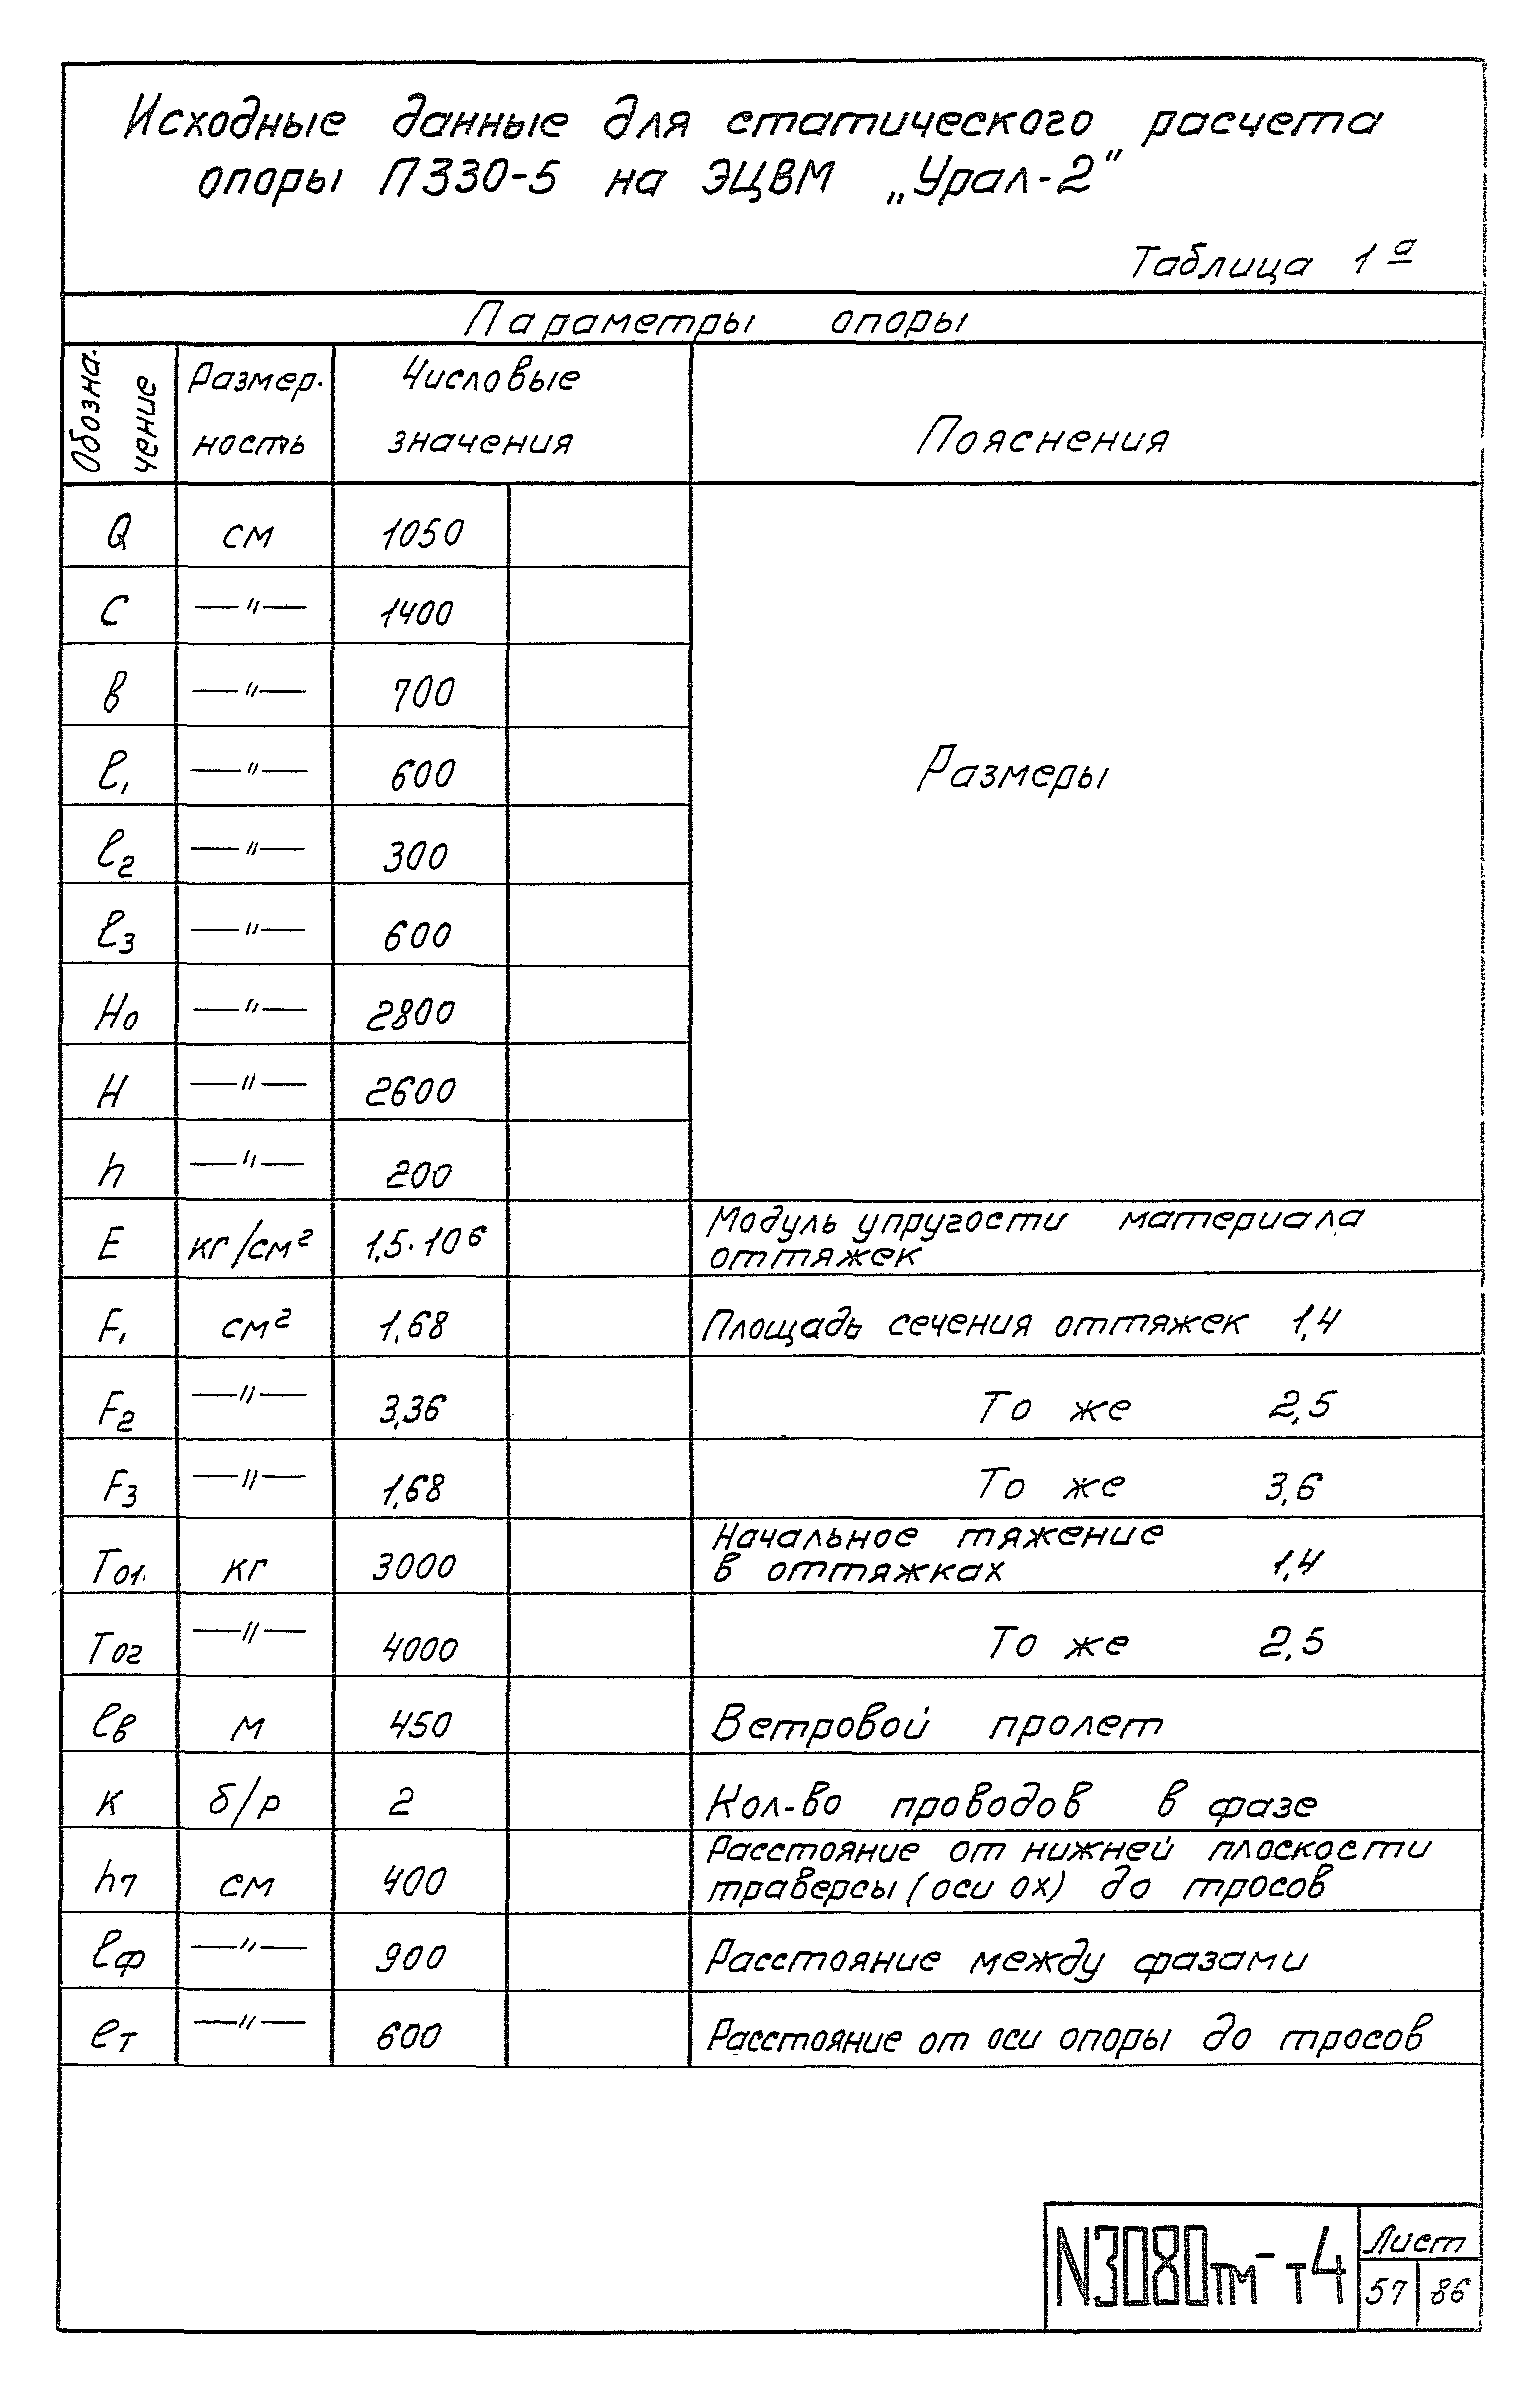 Исходные данные для статического расчета
опоры П330-5 на ЭЦВМ „Урал-2"
Таблица 1а
Параметры опоры
Обозна- Размер- Числовые
чение ность значения Пояснения
Q см 1050
С —"— 1400
в —"— 700
ℓ₁ —"— 600 Размеры
ℓ₂ —"— 300
ℓ₃ —"— 600
Н₀ —"— 2800
Н —"— 2600
h —"— 200
Е кг/см² 1,5·10⁶ Модуль упругости материала
оттяжек
F₁ см² 1,68 Площадь сечения оттяжек 1,4
F₂ —"— 3,36 То же 2,5
F₃ —"— 1,68 То же 3,6
Т₀₁ кг 3000 Начальное тяжение
в оттяжках 1,4
Т₀₂ —"— 4000 То же 2,5
ℓв м 450 Ветровой пролет
К б/р 2 Кол-во проводов в фазе
h₇ см 400 Расстояние от нижней плоскости
траверсы (оси ОХ) до тросов
ℓф —"— 900 Расстояние между фазами
ℓт —"— 600 Расстояние от оси опоры до тросов
N3080тм-т4 Лист
57 86